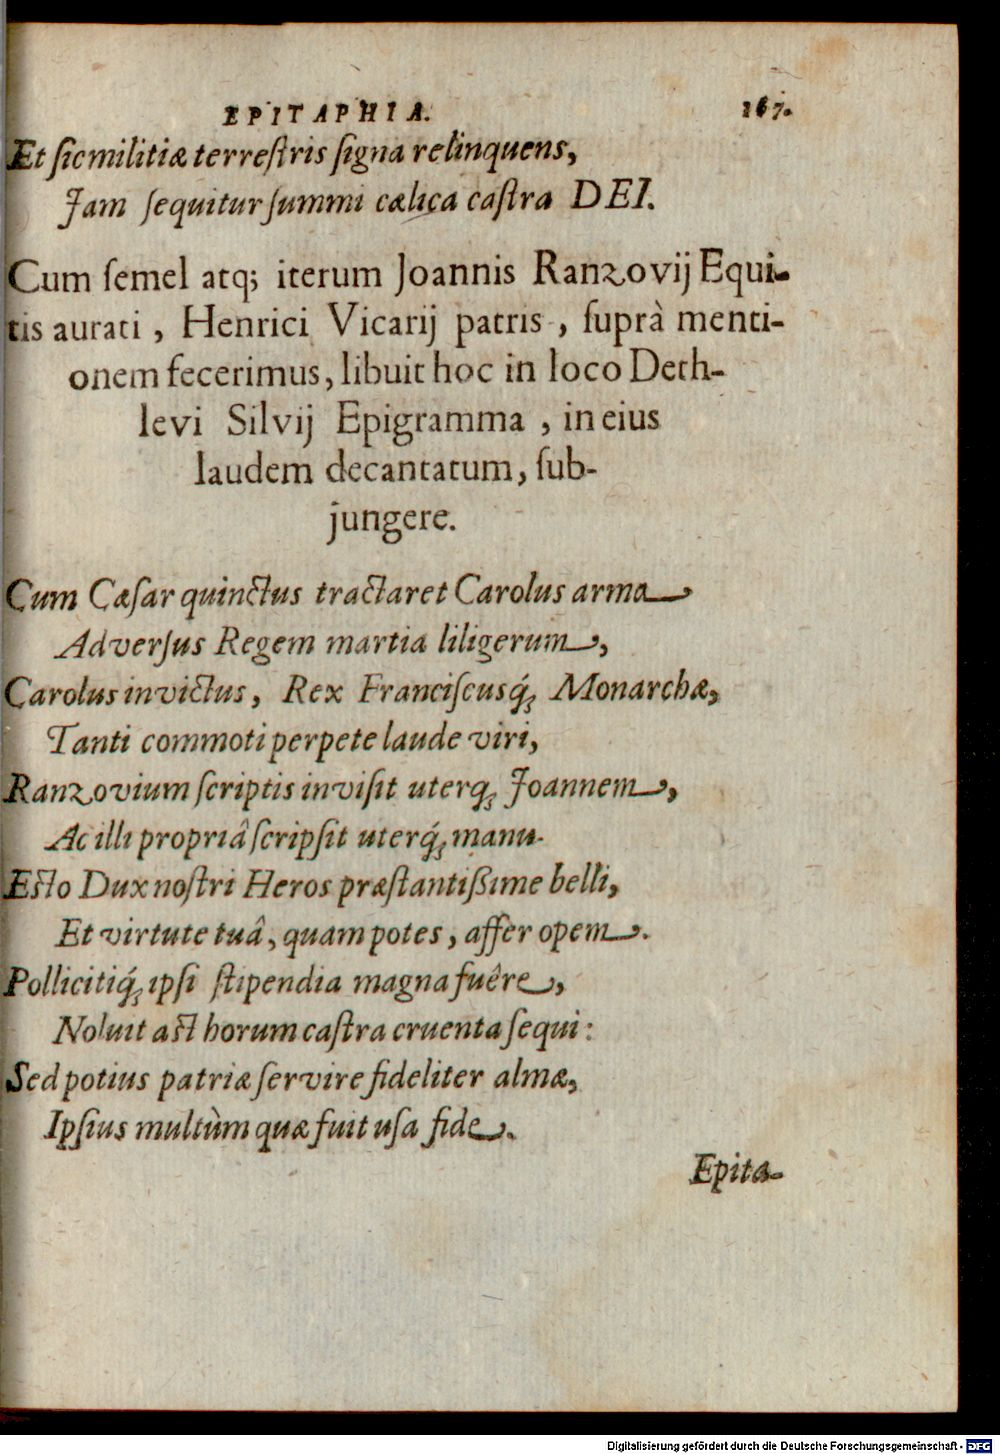 EPITAPHIA. 167.
Et ſic militiæ terreſtris ſigna relinquens,
Jam ſequitur ſummi cælica caſtra DEI.
Cum ſemel atq; iterum Joannis Ranzovij Equi-
tis aurati, Henrici Vicarij patris, ſuprà menti-
onem fecerimus, libuit hoc in loco Deth-
levi Silvij Epigramma, in eius
laudem decantatum, ſub-
jungere.
Cum Cæſar quinctus tractaret Carolus arma
Adverſus Regem martia liligerum,
Carolus invictus, Rex Franciſcusq́; Monarchæ,
Tanti commoti perpete laude viri,
Ranzovium ſcriptis inviſit uterq; Joannem,
Ac illi propriâ ſcripſit uterq́; manu.
Eſto Dux noſtri Heros præſtantißime belli,
Et virtute tuâ, quam potes, affer opem.
Pollicitiq́; ipſi ſtipendia magna fuêre,
Noluit aſt horum caſtra cruenta ſequi:
Sed potius patriæ ſervire fideliter almæ,
Ipſius multùm quæ fuit uſa fide.
Epita-
Digitalisierung gefördert durch die Deutsche Forschungsgemeinschaft - DFG